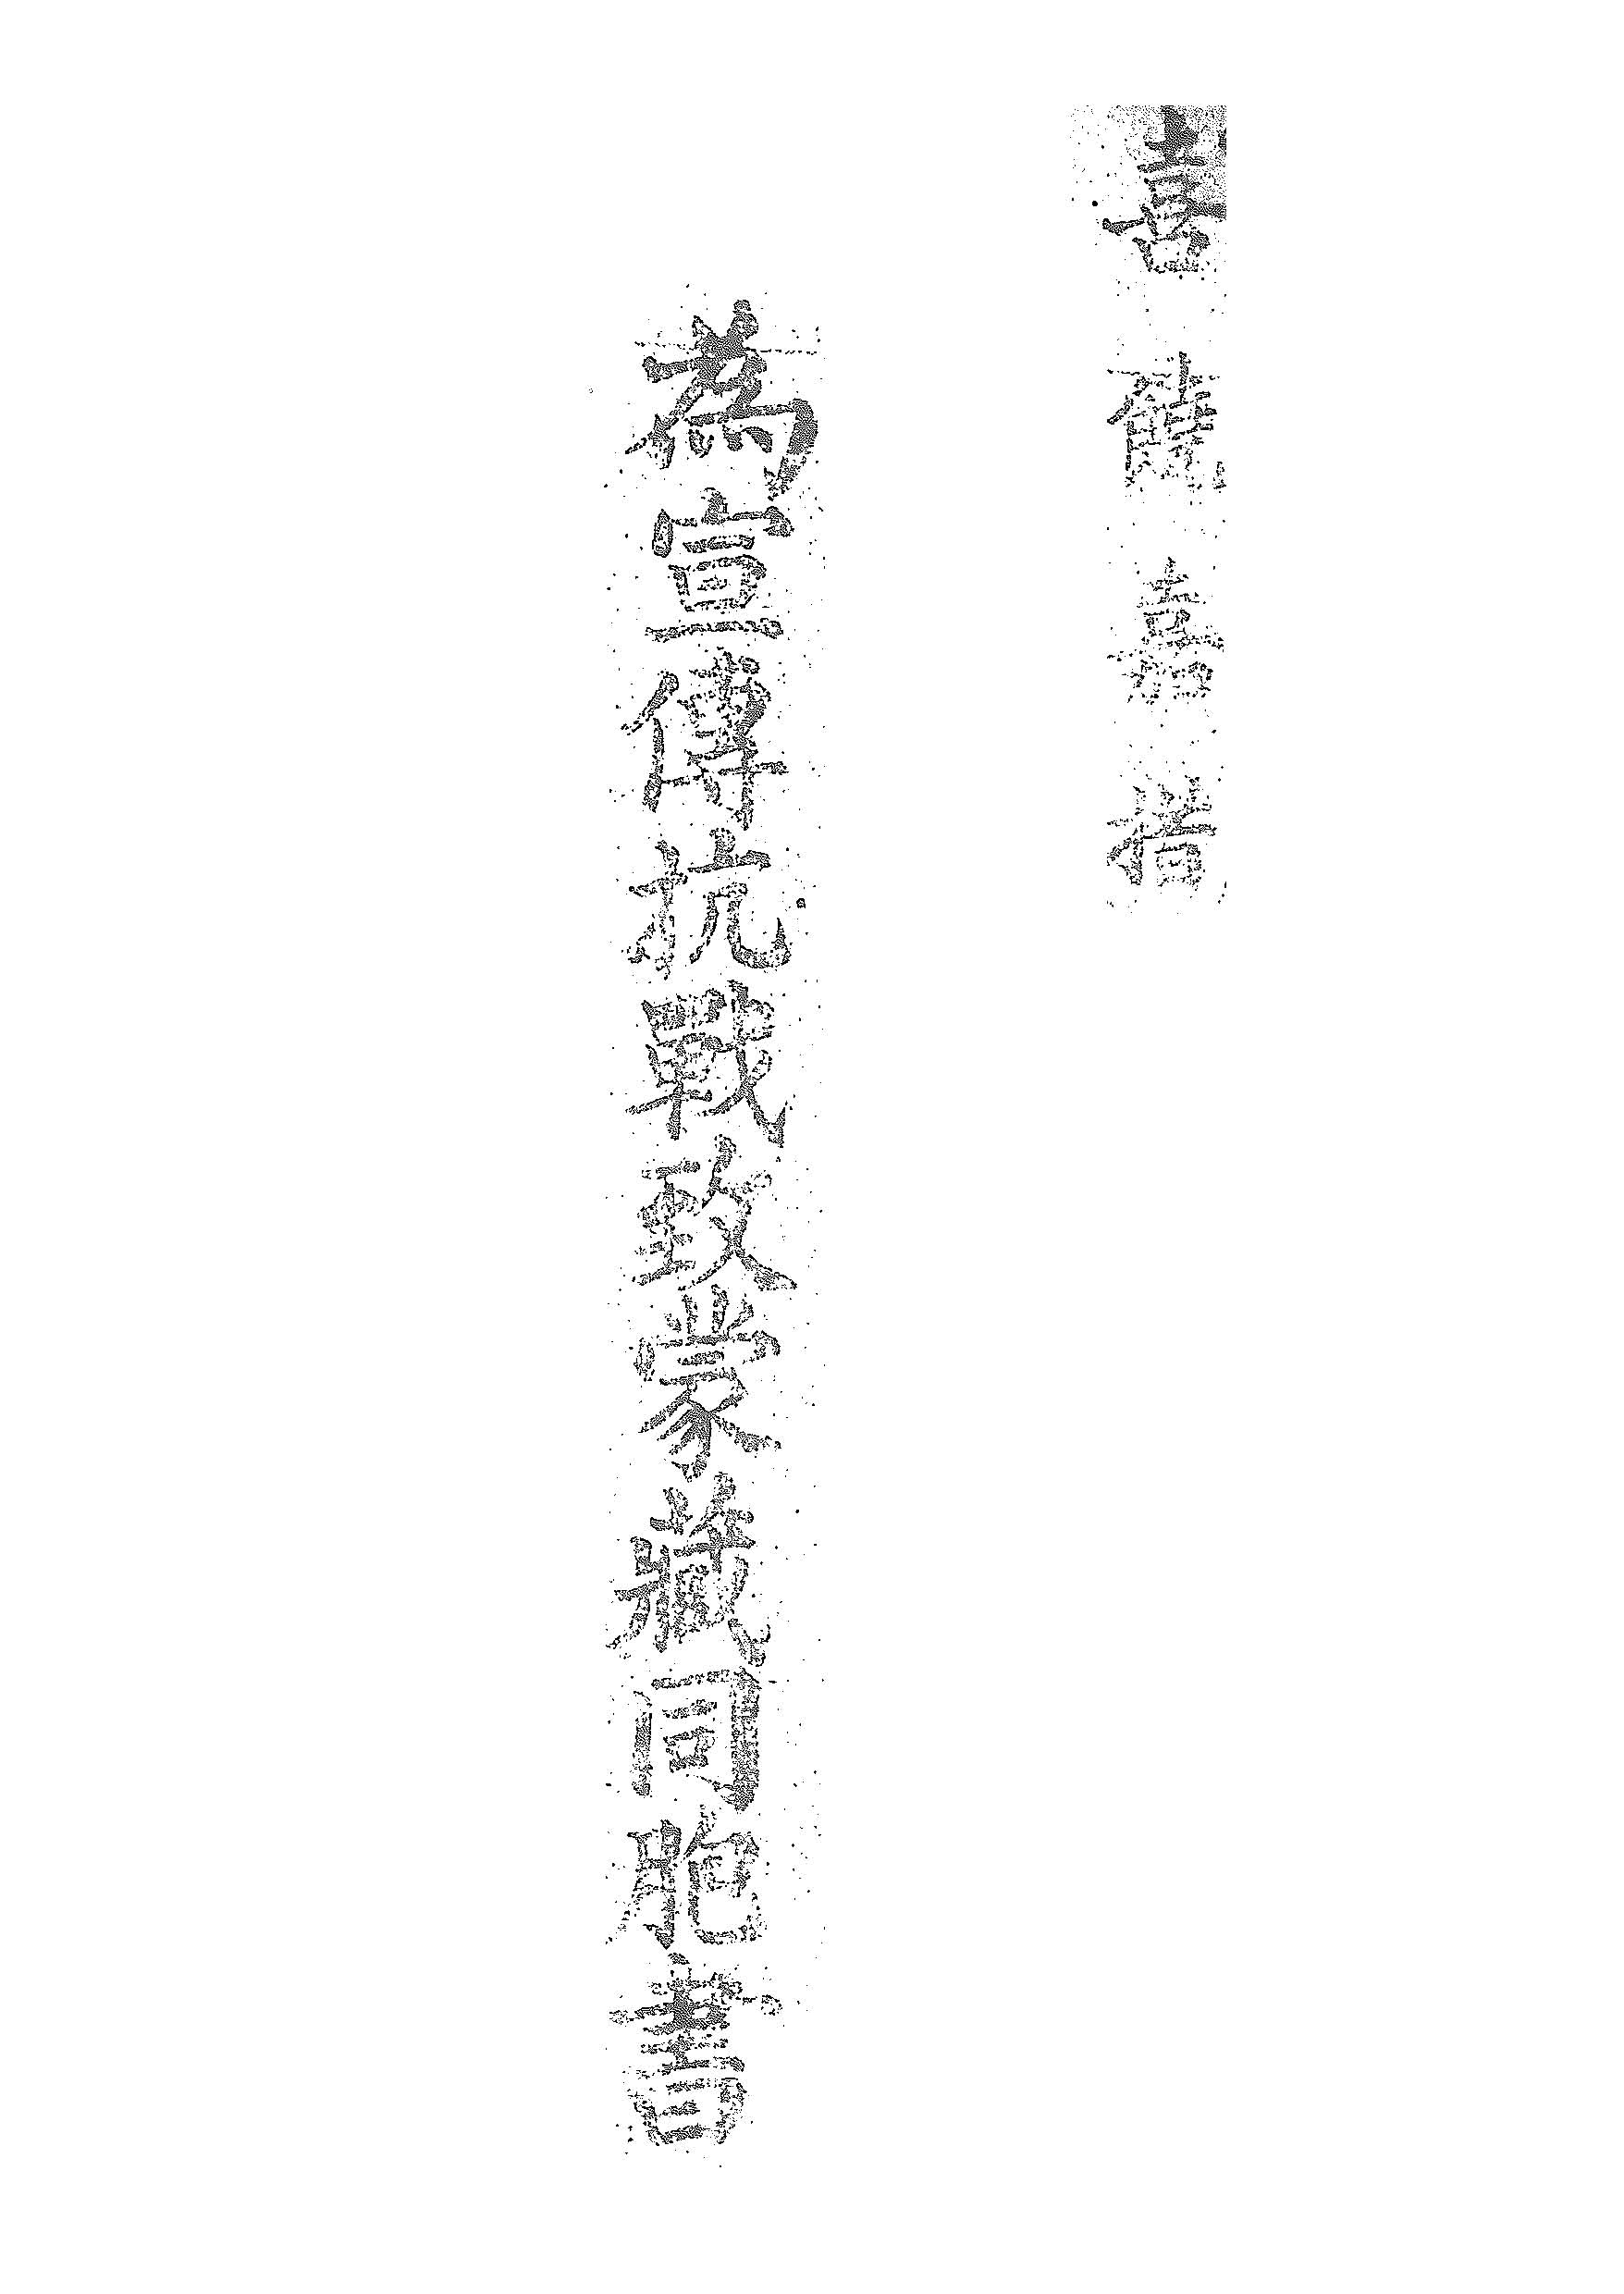 喜饒嘉措
為宣傳抗戰致蒙藏同胞書